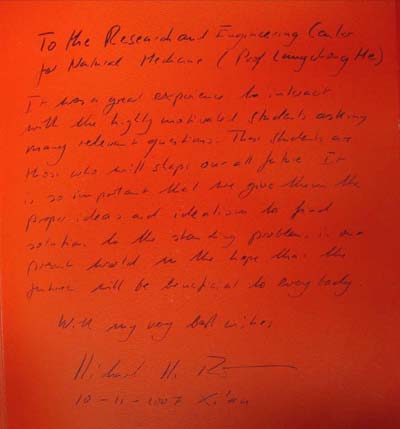 To the Research and Engineering Center
for Natural Medicine (Prof Langchong He)
It was a great experience to interact
with the highly motivated students asking
many relevant questions. These students are
those who will shape our all future. It
is so important that we give them the
proper ideas and idealism to find
solution to the standing problems in our
present world in the hope that the
future will be beneficial to everybody.
With my very best wishes,
Michael H.
10-11-2007 Xi'an